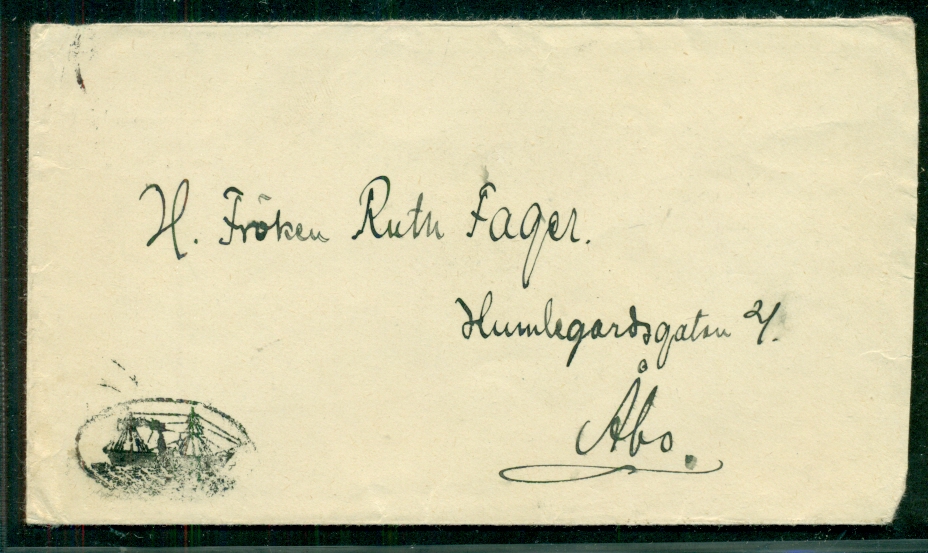 H. Fröken Ruth Fager.
Humlegardsgatan 2/.
Åbo.